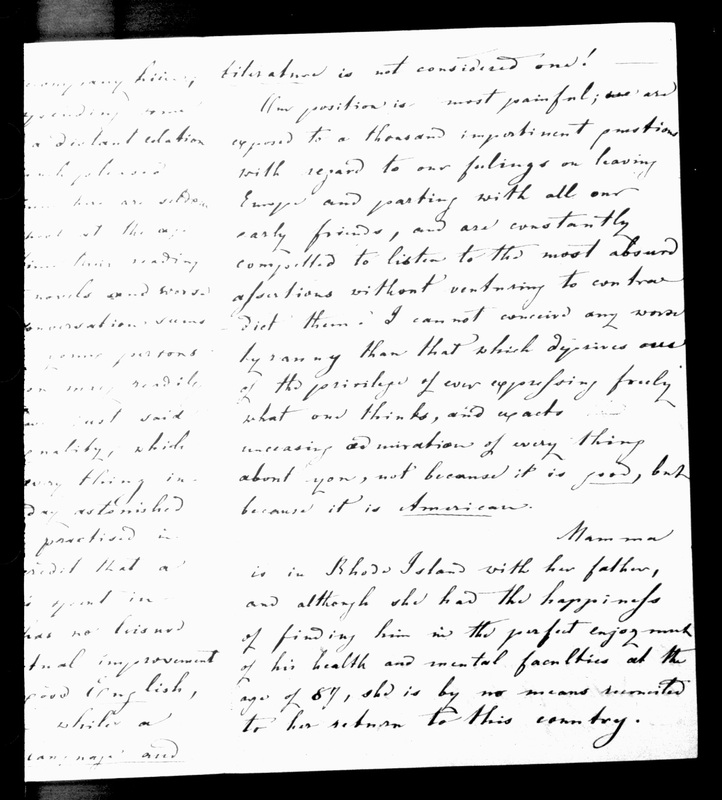 literature is not considered one!
Our position is most painful; we are
exposed to a thousand impertinent questions
with regard to our feelings on leaving
Europe and parting with all our
early friends, and are constantly
compelled to listen to the most absurd
assertions without venturing to contra
dict them! I cannot conceive any worse
tyranny than that which deprives one
of the privilege of ever expressing freely
what one thinks, and exacts
unceasing admiration of every thing
about you, not because it is good, but
because it is American.
Mamma
is in Rhode Island with her father,
and although she had the happiness
of finding him in the perfect enjoyment
of his health and mental faculties at the
age of 87, she is by no means reconciled
to her return to this country.
a distant relation
much pleased
here are seldom
at the age
their reading
novels and worse
conversation
young persons
may readily
just said
which
every thing in
day astonished
practised in
credit that a
spent in
has no leisure
improvement
good English,
while a
language and